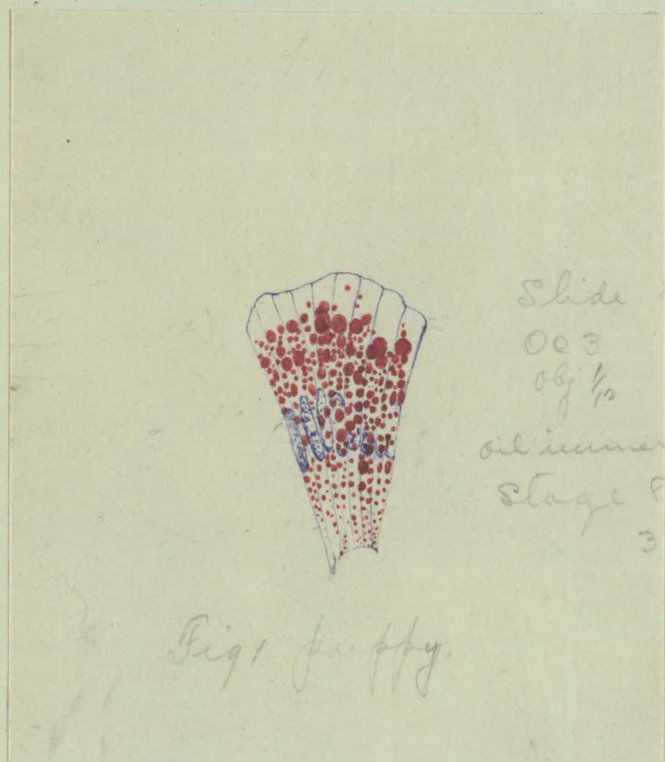 Slide
Oc 3
Obj 1/12
oil immer
Stage 8
3
Fig 1 puppy.